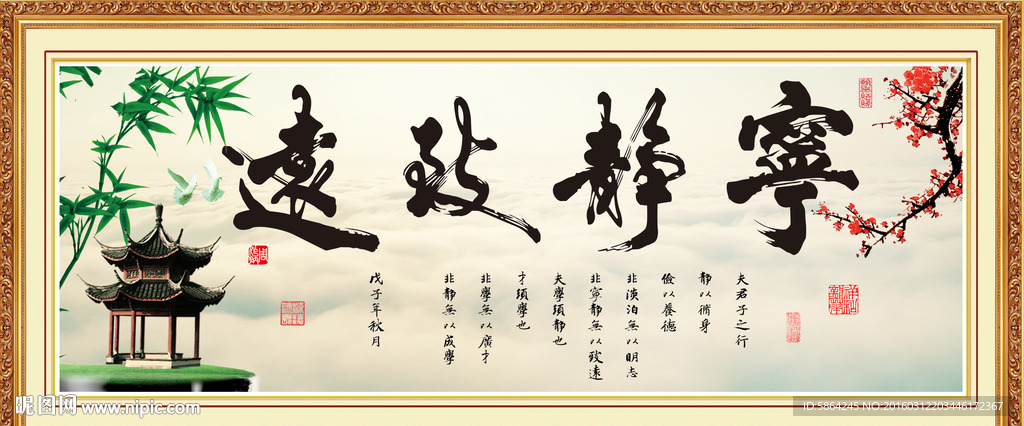 寧靜致遠
夫君子之行
靜以脩身
儉以養德
非淡泊無以明志
非寧靜無以致遠
夫學須靜也
才須學也
非學無以廣才
非靜無以成學
戊子年秋月
昵图网 www.nipic.com
ID:5864245 NO:20160312203446172367